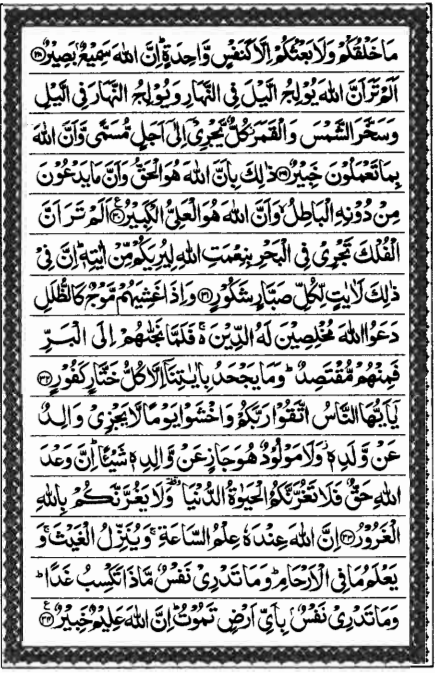 مَا خَلْقُكُمْ وَلَا بَعْثُكُمْ اِلَّا كَنَفْسٍ وَّاحِدَةٍ ؕ اِنَّ اللهَ سَمِيْعٌۢ بَصِيْرٌ ﴿۲۸﴾
اَلَمْ تَرَ اَنَّ اللهَ يُوْلِجُ الَّيْلَ فِى النَّهَارِ وَيُوْلِجُ النَّهَارَ فِى الَّيْلِ
وَسَخَّرَ الشَّمْسَ وَالْقَمَرَ كُلٌّ يَّجْرِىْۤ اِلٰۤى اَجَلٍ مُّسَمًّى وَّاَنَّ اللهَ
بِمَا تَعْمَلُوْنَ خَبِيْرٌ ﴿۲۹﴾ ذٰلِكَ بِاَنَّ اللهَ هُوَ الْحَقُّ وَاَنَّ مَا يَدْعُوْنَ
مِنْ دُوْنِهِ الْبَاطِلُ ۙ وَاَنَّ اللهَ هُوَ الْعَلِىُّ الْكَبِيْرُ ﴿۳۰﴾ اَلَمْ تَرَ اَنَّ
الْفُلْكَ تَجْرِىْ فِى الْبَحْرِ بِنِعْمَتِ اللهِ لِيُرِيَكُمْ مِّنْ اٰيٰتِهٖ ؕ اِنَّ فِىْ
ذٰلِكَ لَاٰيٰتٍ لِّكُلِّ صَبَّارٍ شَكُوْرٍ ﴿۳۱﴾ وَاِذَا غَشِيَهُمْ مَّوْجٌ كَالظُّلَلِ
دَعَوُا اللهَ مُخْلِصِيْنَ لَهُ الدِّيْنَ ۚ فَلَمَّا نَجّٰىهُمْ اِلَى الْبَرِّ
فَمِنْهُمْ مُّقْتَصِدٌ ؕ وَمَا يَجْحَدُ بِاٰيٰتِنَاۤ اِلَّا كُلُّ خَتَّارٍ كَفُوْرٍ ﴿۳۲﴾
يٰۤاَيُّهَا النَّاسُ اتَّقُوْا رَبَّكُمْ وَاخْشَوْا يَوْمًا لَّا يَجْزِىْ وَالِدٌ
عَنْ وَّلَدِهٖ وَلَا مَوْلُوْدٌ هُوَ جَازٍ عَنْ وَّالِدِهٖ شَيْئًا ؕ اِنَّ وَعْدَ
اللهِ حَقٌّ فَلَا تَغُرَّنَّكُمُ الْحَيٰوةُ الدُّنْيَا ۥ وَلَا يَغُرَّنَّكُمْ بِاللهِ
الْغَرُوْرُ ﴿۳۳﴾ اِنَّ اللهَ عِنْدَهٗ عِلْمُ السَّاعَةِ ۚ وَيُنَزِّلُ الْغَيْثَ ۚ وَ
يَعْلَمُ مَا فِى الْاَرْحَامِ ؕ وَمَا تَدْرِىْ نَفْسٌ مَّاذَا تَكْسِبُ غَدًا ؕ
وَمَا تَدْرِىْ نَفْسٌۢ بِاَىِّ اَرْضٍ تَمُوْتُ ؕ اِنَّ اللهَ عَلِيْمٌ خَبِيْرٌ ﴿۳۴﴾